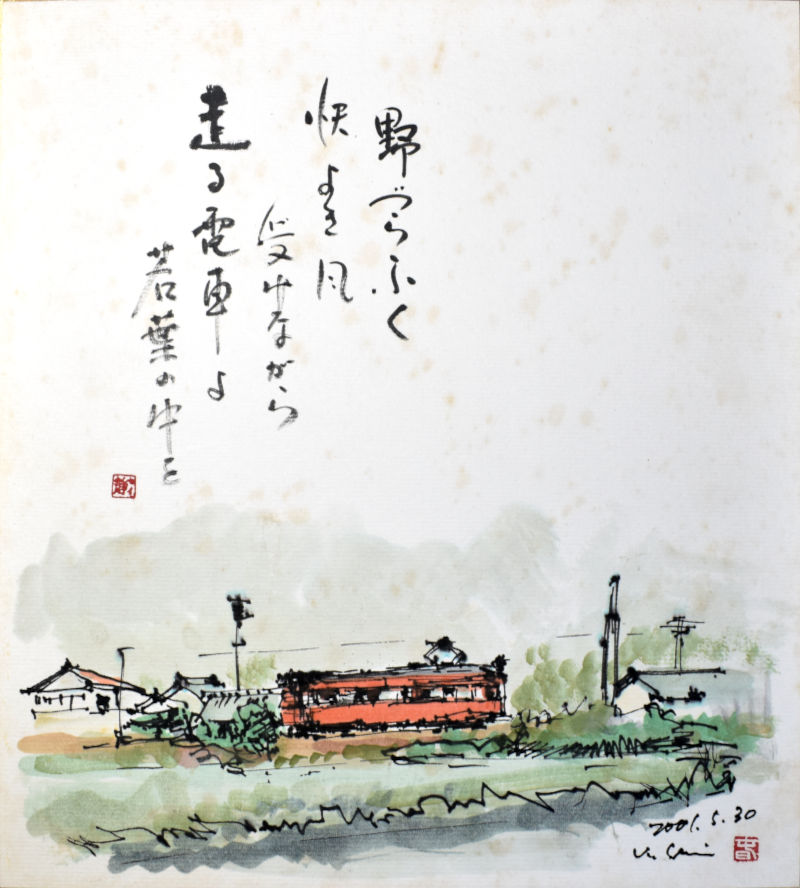 野づらふく
快よき風
受けながら
走る電車よ
若葉の中を
2001.5.30